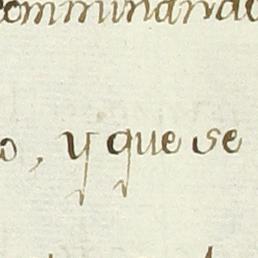 comminando
o, y que se